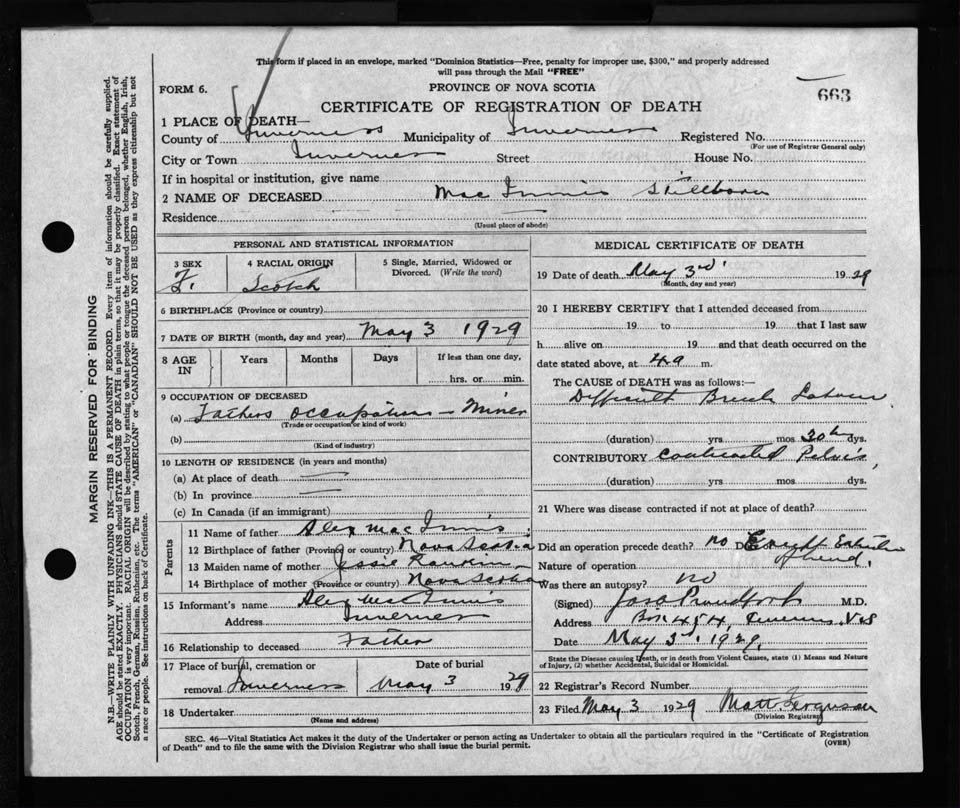 This form if placed in an envelope, marked "Dominion Statistics—Free, penalty for improper use, $300," and properly addressed
will pass through the Mail "FREE"
FORM 6. PROVINCE OF NOVA SCOTIA 663
CERTIFICATE OF REGISTRATION OF DEATH
1 PLACE OF DEATH—
County of Inverness Municipality of Inverness Registered No.
(For use of Registrar General only)
City or Town Inverness Street House No.
If in hospital or institution, give name
2 NAME OF DECEASED Mac Innis Stillborn
Residence —
(Usual place of abode)
PERSONAL AND STATISTICAL INFORMATION
3 SEX 4 RACIAL ORIGIN 5 Single, Married, Widowed or
Divorced. (Write the word)
F. Scotch
6 BIRTHPLACE (Province or country)
7 DATE OF BIRTH (month, day and year) May 3 1929
8 AGE IN Years Months Days If less than one day,
hrs. or min.
9 OCCUPATION OF DECEASED
(a) Fathers occupation — Miner
(Trade or occupation or kind of work)
(b)
(Kind of industry)
10 LENGTH OF RESIDENCE (in years and months)
(a) At place of death —
(b) In province —
(c) In Canada (if an immigrant)
Parents
11 Name of father Alex Mac Innis
12 Birthplace of father (Province or country) Nova Scotia
13 Maiden name of mother Jessie Rankin
14 Birthplace of mother (Province or country) Nova Scotia
15 Informant's name Alex Mac Innis
Address Inverness
16 Relationship to deceased Father
17 Place of burial, cremation or Date of burial
removal Inverness May 3 1929
18 Undertaker
(Name and address)
MEDICAL CERTIFICATE OF DEATH
19 Date of death May 3rd 1929
(Month, day and year)
20 I HEREBY CERTIFY that I attended deceased from
19 to 19 that I last saw
h alive on 19 and that death occurred on the
date stated above, at 4 a m.
The CAUSE of DEATH was as follows:—
Difficult Breech Labour
(duration) yrs mos 30 h dys.
CONTRIBUTORY Contracted Pelvis
(duration) yrs mos dys.
21 Where was disease contracted if not at place of death?
Did an operation precede death? no
Nature of operation
Was there an autopsy? no
(Signed) M.D.
Address Box 454, Inverness, N.S
Date May 3rd, 1929,
State the Disease causing Death, or in death from Violent Causes, state (1) Means and Nature
of Injury, (2) whether Accidental, Suicidal or Homicidal.
22 Registrar's Record Number
23 Filed May 3 1929 Matt Ferguson
(Division Registrar)
SEC. 46—Vital Statistics Act makes it the duty of the Undertaker or person acting as Undertaker to obtain all the particulars required in the "Certificate of Registration
of Death" and to file the same with the Division Registrar who shall issue the burial permit. (OVER)
MARGIN RESERVED FOR BINDING
N.B.—WRITE PLAINLY WITH UNFADING INK—THIS IS A PERMANENT RECORD. Every item of information should be carefully supplied.
AGE should be stated EXACTLY. PHYSICIANS should STATE CAUSE OF DEATH in plain terms, so that it may be properly classified. Exact statement of
OCCUPATION is very important. RACIAL ORIGIN will be described by stating to what people or tongue the deceased person belonged, whether English, Irish,
Scotch, French, German, Russian, Ruthenian, etc. The terms "AMERICAN" or "CANADIAN" SHOULD NOT BE USED as they express citizenship but not
a race or people. See instructions on back of Certificate.